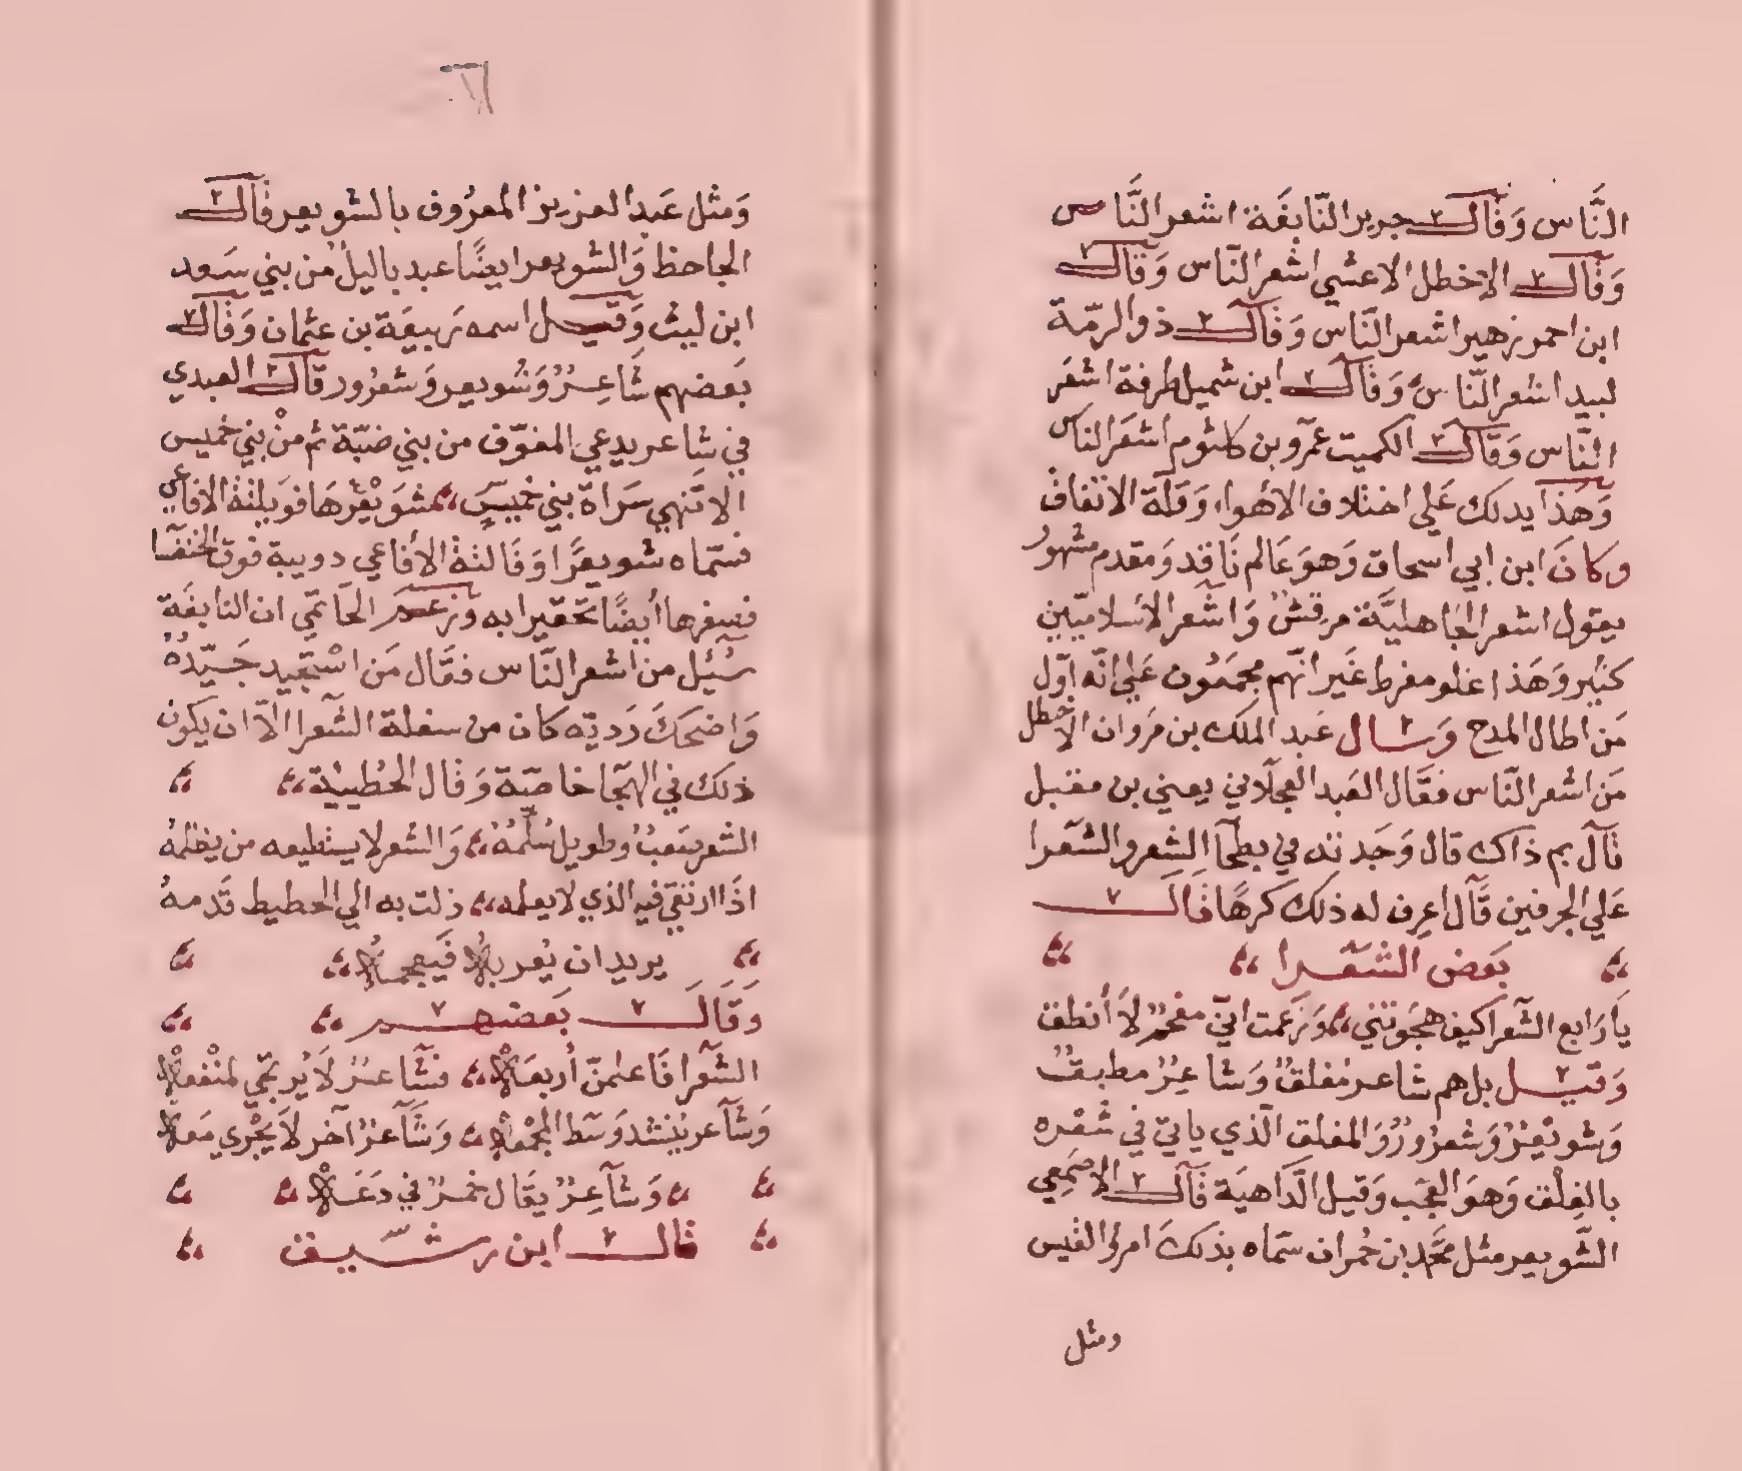 النَّاس وَقَال جرير النّابغَة اشعر النَّاس
وَقَال الاخطل الاعشي اشعر النَّاس وَقَال
ابن احمر زهير اشعر النَّاس وَقَال ذو الرمّة
لبيد اشعر النَّاس وَقَال ابن شميل طرفة اشعَر
النَّاس وَقَال الكميت عمرو بن كلثوم اشعَر الناس
وَهَذا يدلك عَلي اختلاف الاهواء وَقلّة الاتفاق
وكانَ ابن ابي اسحاق وَهوَ عَالم نَاقد وَمقدم مشهور
يقول اشعر الجَاهليَّة مرقش وَاشعر الاسلاميّين
كثير وَهَذا غلو مفرط غَير انّهم مجمعُون عَلي انّه اوّل
مَن اطال المدح وَسال عَبد الملك بن مَروان الاخطل
مَن اشعر النّاس فقَال العَبد العجلاني يعني بن مقبل
قال بم ذاك قال وَجَدته في بطحآ الشِعر والشعَرا
عَلي الجرفين قال اعرف له ذلك كرهًا قال
بَعض الشعَرا
يا رَابع الشعَرا كيف هجَوتني وَزعمت انّي مفحمٌ لَا أنطق
وَقيل بل هم شاعر مُفلقٌ وَشاعِرٌ مطبقٌ
وَشويْعرٌ وَشعرُورٌ وَالمفلق الّذي ياتي في شعْره
بالفِلْق وَهوَ العجَب وَقيل الدَّاهيَة قَال الاصمَعِي
الشّويعر مثل محَّمد بن حُمران سَمّاه بذلك امرؤ القيس
ومثل
٦٦
وَمثل عَبد العزيز المعرُوف بالشويعر قَال
الجاحظ وَالشويعر ايضًا عبد ياليل من بني سَعد
ابن ليث وَقيل اسمه رَبيعَة بن عثمان وَقَال
بَعضهم شَاعِرٌ وَشُويعر وَشعرُور قال العبدي
في شاعر يدعي المفوّف من بني ضبّة ثم منْ بني خميس
الا تَنهي سَراة بني خميسٍ شوَيْعرهَا فوَيلتة الافاعي
فسَمّاه شويعرًا وَفالتة الأفاعي دويبة فوق الخنفسَا
فصغرها أيضًا تحَقيرا به وَزعم الحَاتمي ان النابغَة
سُئِل من اشعر النَّاس فقَال مَن اسْتجيد جَيّدُهُ
وَاضحَكَ رَديّه كان من سفلة الشعَرا الّا ان يكون
ذلك في الهجَا خاصّة وَقال الحُطيئة
الشعر صَعبٌ وطويل سُلّمُهْ وَالشعر لا يسْتطيعه من يظلمهُ
اذَا ارتقي فيه الذي لا يعلمه زلت به الي الحطيط قَدمهُ
يريد ان يُعربهُ فَيعجمهُ
وَقَالَ بَعضهم
الشعَرا فَاعلمنّ أربعَهْ فشَاعرٌ لَا يُرتجَي لمنْفعهْ
وَشَاعر يُنشد وَسَط المجْمعهْ وَشَاعرٌ آخر لَا يَجْري مَعهْ
وَشَاعِرٌ يقَال خمرٌ في دَعَهْ
قال ابن رشيق